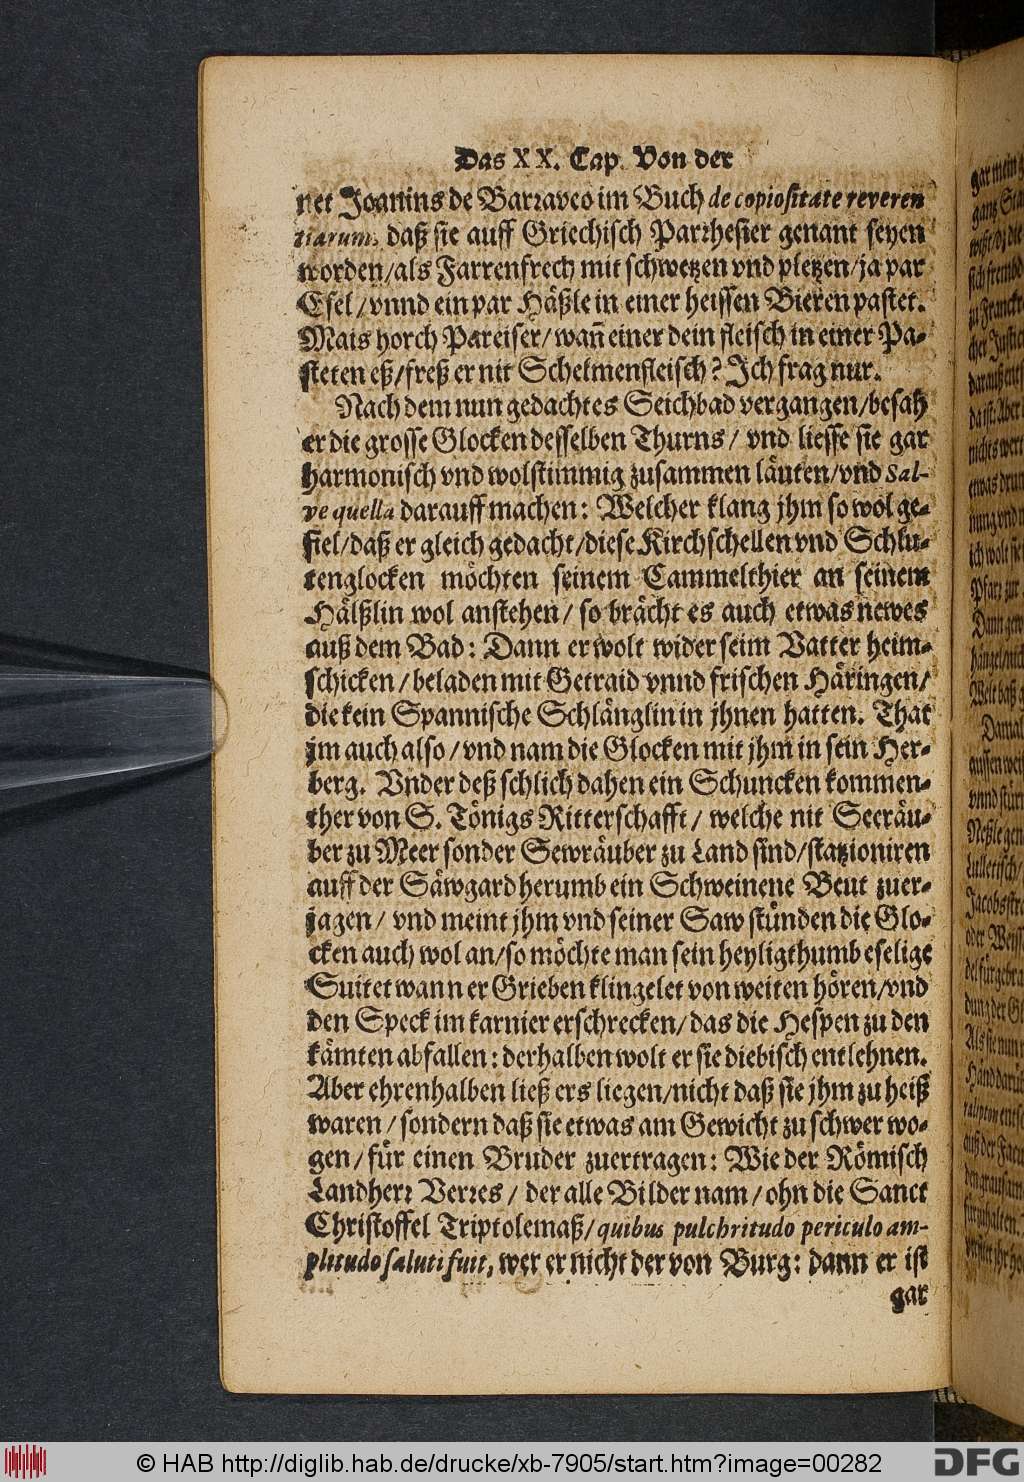 Das XX. Cap. Von der
net Joanins de Barraveo im Buch de copiositate reveren
tiarum, daß sie auff Griechisch Parrhesier genant seyen
worden/als Farrenfrech mit schwetzen vnd pletzen/ja par
Esel/vnnd ein par Häßle in einer heissen Bieren pastet.
Mais horch Pareiser/wañ einer dein fleisch in einer Pa-
steten eß/freß er nit Schelmenfleisch? Ich frag nur.
Nach dem nun gedachtes Seichbad vergangen/besah
er die grosse Glocken desselben Thurns/ vnd liesse sie gar
harmonisch vnd wolstimmig zusammen läuten/vnd Sal-
ve quella darauff machen: Welcher klang jhm so wol ge-
fiel/daß er gleich gedacht/diese Kirchschellen vnd Schlu-
tenglocken möchten seinem Cammelthier an seinem
Hälßlin wol anstehen/ so brächt es auch etwas newes
auß dem Bad: Dann er wolt wider seim Vatter heim-
schicken/beladen mit Getraid vnnd frischen Häringen/
die kein Spannische Schlänglin in jhnen hatten. That
jm auch also/vnd nam die Glocken mit jhm in sein Her-
berg. Vnder deß schlich dahen ein Schuncken kommen-
ther von S. Tönigs Ritterschafft/ welche nit Seeräu-
ber zu Meer sonder Sewräuber zu Land sind/statzioniren
auff der Säwgard herumb ein Schweinene Beut zuer-
jagen/ vnd meint jhm vnd seiner Saw stünden die Glo-
cken auch wol an/so möchte man sein heyligthumb eselige
Suitet wann er Grieben klingelet von weiten hören/vnd
den Speck im karnier erschrecken/das die Hespen zu den
kämten abfallen: derhalben wolt er sie diebisch entlehnen.
Aber ehrenhalben ließ ers liegen/nicht daß sie jhm zu heiß
waren/sondern daß sie etwas am Gewicht zu schwer wo-
gen/für einen Bruder zuertragen: Wie der Römisch
Landherr Verres/ der alle Bilder nam/ohn die Sanct
Christoffel Triptolemaß/quibus pulchritudo periculo am-
plitudo saluti fuit, wer er nicht der von Burg: dann er ist
gar
© HAB http://diglib.hab.de/drucke/xb-7905/start.htm?image=00282
DFG